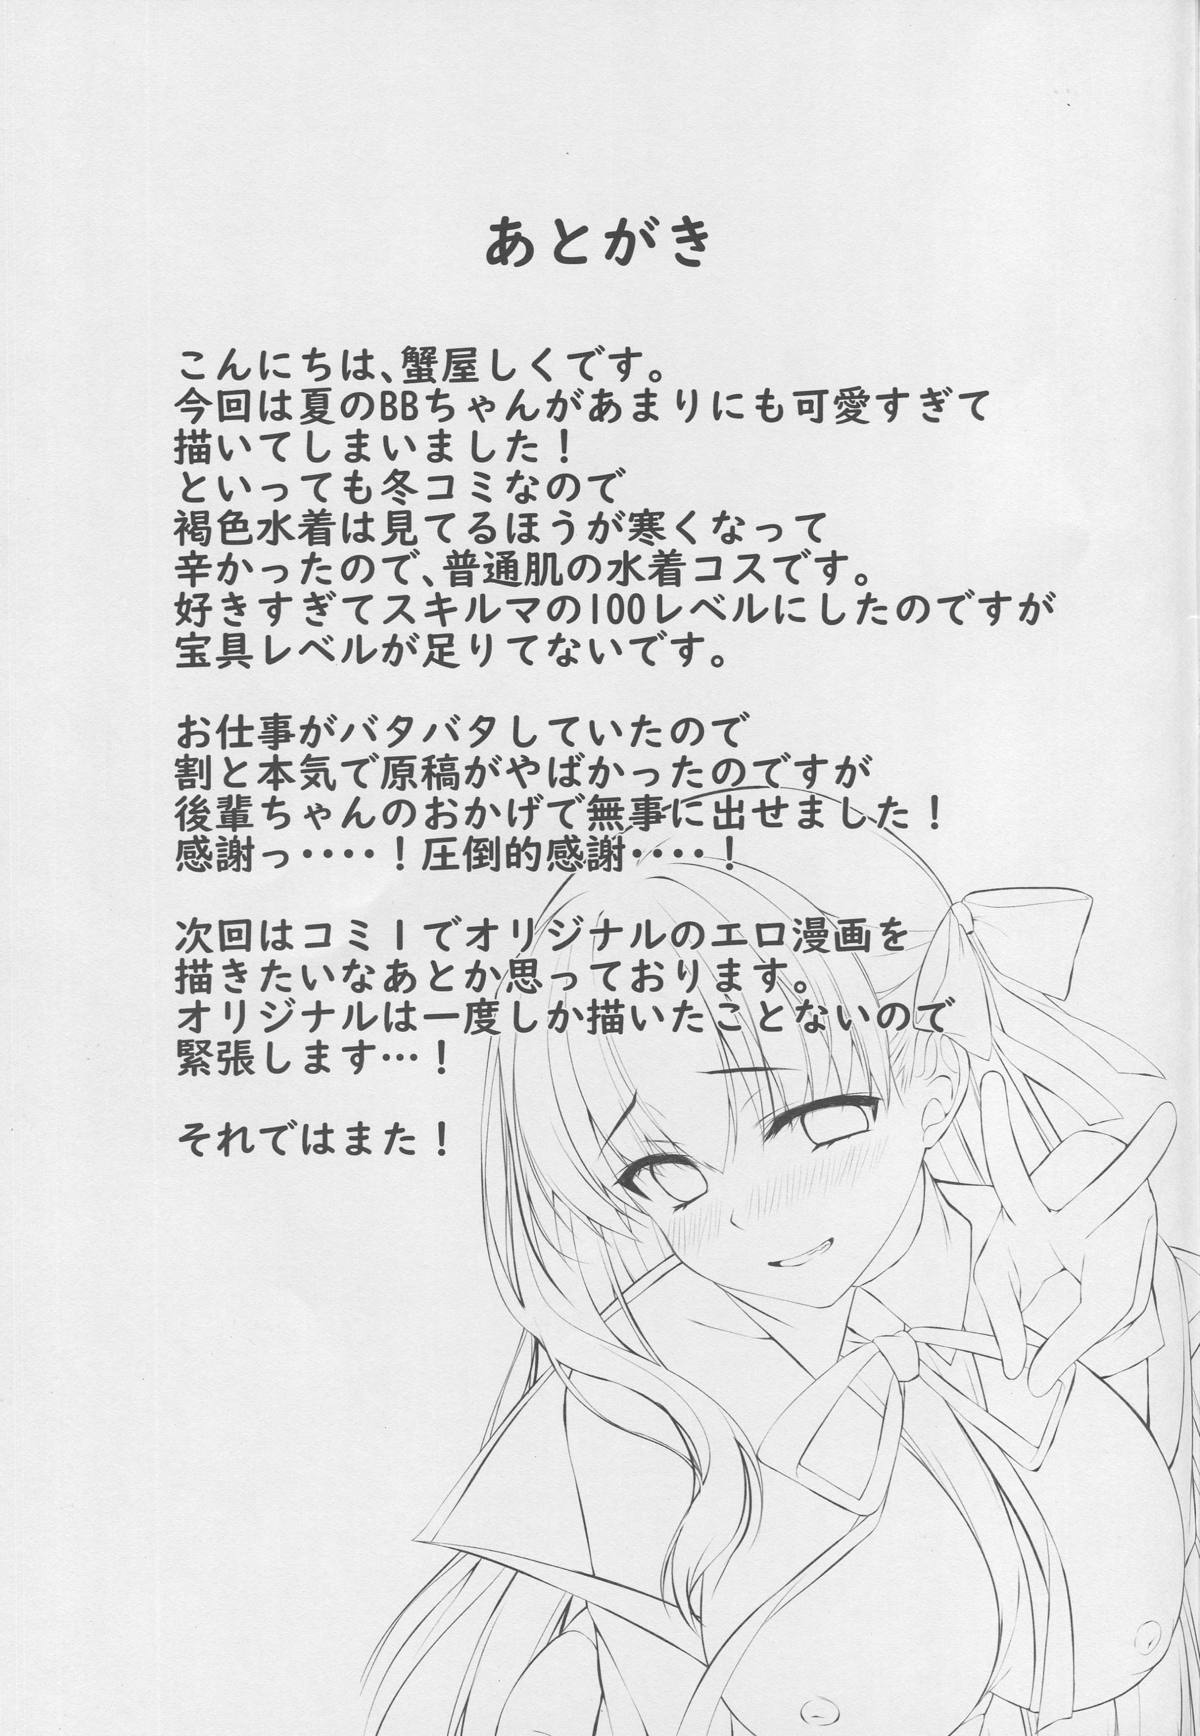 あとがき
こんにちは、蟹屋しくです。
今回は夏のBBちゃんがあまりにも可愛すぎて
描いてしまいました！
といっても冬コミなので
褐色水着は見てるほうが寒くなって
辛かったので、普通肌の水着コスです。
好きすぎてスキルマの100レベルにしたのですが
宝具レベルが足りてないです。
お仕事がバタバタしていたので
割と本気で原稿がやばかったのですが
後輩ちゃんのおかげで無事に出せました！
感謝っ・・・・！圧倒的感謝・・・・！
次回はコミ1でオリジナルのエロ漫画を
描きたいなあとか思っております。
オリジナルは一度しか描いたことないので
緊張します…！
それではまた！